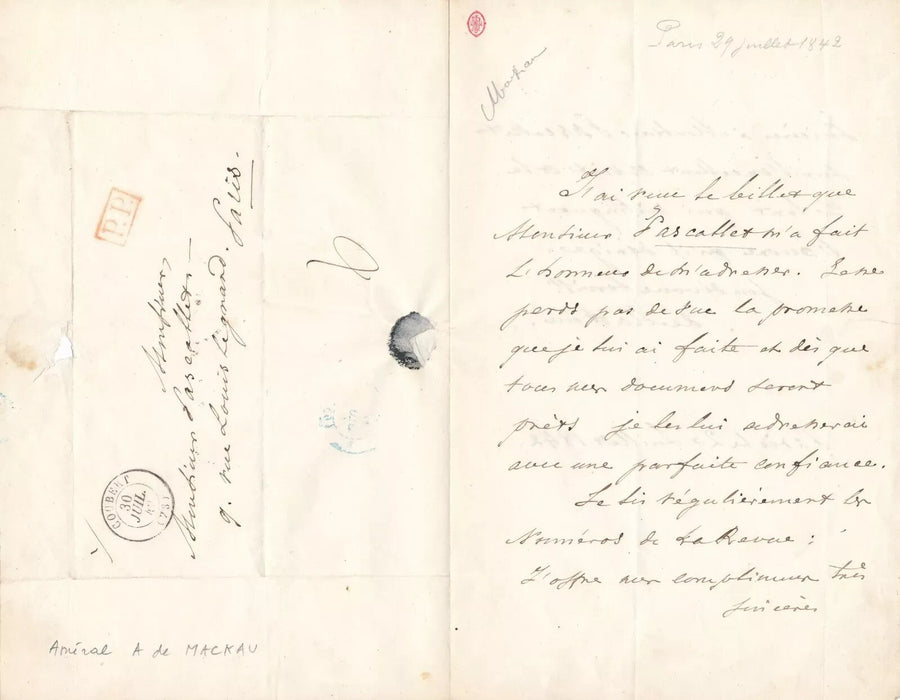 Paris 29 juillet 1842
Mackau
J'ai reçu le billet que
Monsieur Pascallet m'a fait
L'honneur de m'adresser. Je ne
perds pas de vue la promesse
que je lui ai faite et dès que
tous mes documens seront
prêts je les lui adresserai
avec une parfaite confiance.
Je lis régulièrement les
Numéros de La Revue :
J'offre mes complimens très
sincères
P.P.
Monsieur,
Monsieur Pascallet
9. rue Louis Legrand. Paris.
COUBERT
30
JUIL.
(73)
Amiral A de MACKAU